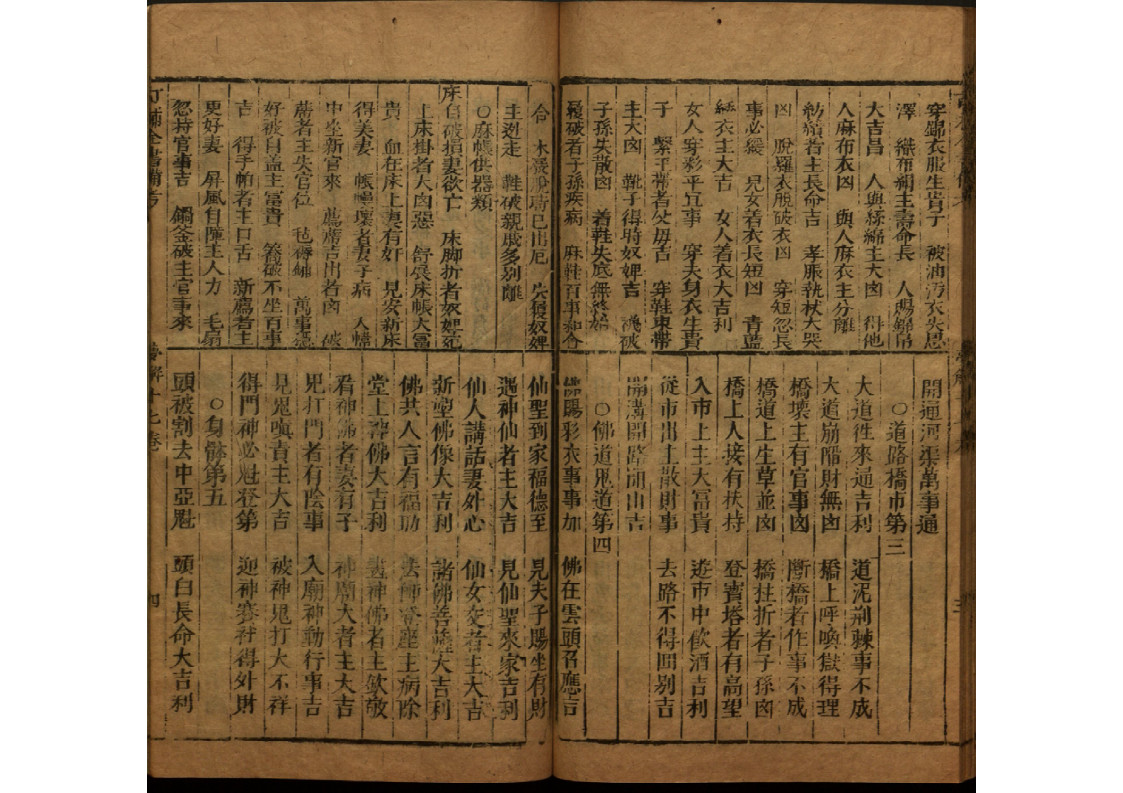 穿錦衣服生貴子 被油汚衣失恩
澤 織布絹主壽命長 人賜錦帛
大吉昌 人與絲綿主大凶 得他
人麻布衣凶 與人麻衣主分離
紡績者主長命吉 孝服執杖大哭
凶 脫羅衣脫破衣凶 穿短忽長
事必緩 見女着衣長短凶 青藍
綠衣主大吉 女人着衣大吉利
女人穿彩平宜事 穿夫身衣生貴
子 繫平帶者災毋吉 穿鞋束帶
主大凶 靴子得時奴婢吉 破
子孫失散凶 着鞋失底無終始
履破者子孫疾病 麻鞋百事和合
合 木屐脫時已出厄 失履奴婢
主迯走 鞋破親戚多別離
○床帳供器類
床自破損妻欲亡 床脚折者奴婢死
上床掛者大凶惡 舒展床帳大富
貴 血在床上妻有奸 見安新床
得美妻 帳幃壞者妻子病 人幃
中坐新官來 薦蓆吉出者凶 破
蓆者主失官位 毡褥鋪 萬事憑
好被自盖主富貴 簀破不坐百事
吉 得手帕者主口舌 新薦者主
更好妻 屏風自障主人力 毛扇
忽持官事吉 鍋釜破主官事來
開通河渠萬事通
○道路橋市第三
大道徃來通吉利 道泥荊棘事不成
大道崩陷財無凶 橋上呼喚獄得理
橋壞主有官事凶 斷橋者作事不成
橋道上生草並凶 橋拄折者子孫凶
橋上人接有扶持 登寶塔者有高望
入市上主大富貴 遊市中飲酒吉利
從市出主散財事 去路不得囬別吉
開溝開路開山吉
○佛道鬼道第四
佛賜彩衣事事加 佛在雲頭召應吉
仙聖到家福德至 見夫子賜坐有財
遇神仙者主大吉 見仙聖來家吉利
仙人講話妻外心 仙女交者主大吉
新塑佛像大吉利 諸佛菩薩大吉利
佛共人言有福助 法師登座主病除
堂上神佛大吉利 畫神佛者主欽敬
看神佛者妻有子 神廟大者主大吉
鬼打門者有陰事 入廟神動行事吉
見鬼嗔責主大吉 被神鬼打大不祥
得門神必魁登第 迎神賽社得外財
○身骸第五
頭被割去中亞魁 頭白長命大吉利